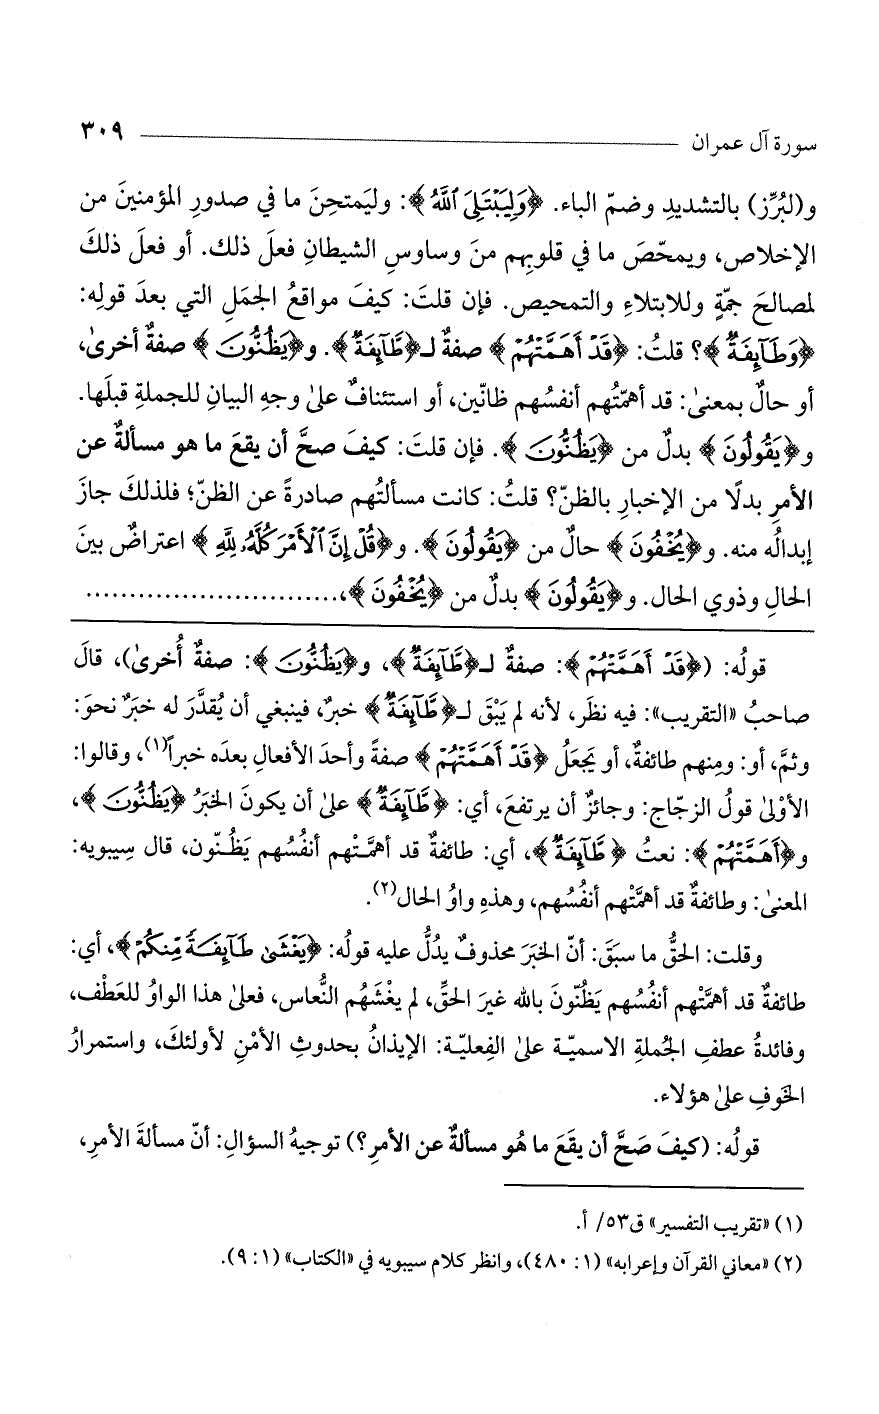 سورة آل عمران ٣٠٩
و(لبُرِّز) بالتشديدِ وضمّ الباء. ﴿وَلِيَبْتَلِىَ ٱللَّهُ﴾: وليَمتحِنَ ما في صدورِ المؤمنينَ من
الإخلاص، ويمحّصَ ما في قلوبِهم منَ وساوسِ الشيطانِ فعلَ ذلك. أو فعلَ ذلكَ
لمصالحَ جمّةٍ وللابتلاءِ والتمحيص. فإن قلتَ: كيفَ مواقعُ الجمَلِ التي بعدَ قولِه:
﴿وَطَآئِفَةٌ﴾؟ قلتُ: ﴿قَدْ أَهَمَّتْهُمْ﴾ صفةٌ لـ﴿طَّآئِفَةٌ﴾. و﴿يَظُنُّونَ﴾ صفةٌ أخرىٰ،
أو حالٌ بمعنىٰ: قد أهمّتْهُم أنفسُهم ظانّين، أو استئنافٌ علىٰ وجهِ البيانِ للجملةِ قبلَها.
و﴿يَقُولُونَ﴾ بدلٌ من ﴿يَظُنُّونَ﴾. فإن قلتَ: كيفَ صحَّ أن يقعَ ما هو مسألةٌ عن
الأمرِ بدلًا من الإخبارِ بالظنّ؟ قلتُ: كانت مسألتُهم صادرةً عن الظنّ؛ فلذلكَ جازَ
إبدالُه منه. و﴿يُخْفُونَ﴾ حالٌ من ﴿يَقُولُونَ﴾. و﴿قُلْ إِنَّ ٱلْأَمْرَ كُلَّهُۥ لِلَّهِ﴾ اعتراضٌ بينَ
الحالِ وذوي الحال. و﴿يَقُولُونَ﴾ بدلٌ من ﴿يُخْفُونَ﴾،............................
قولُه: (﴿قَدْ أَهَمَّتْهُمْ﴾: صفةٌ لـ﴿طَّآئِفَةٌ﴾، و﴿يَظُنُّونَ﴾: صفةٌ أُخرىٰ)، قالَ
صاحبُ «التقريب»: فيه نظَر، لأنه لم يَبْقَ لـ﴿طَّآئِفَةٌ﴾ خبرٌ، فينبغي أن يُقدَّرَ له خبَرٌ نحوَ:
وثمَّ، أو: ومِنهم طائفةٌ، أو يَجعَلُ ﴿قَدْ أَهَمَّتْهُمْ﴾ صفةً وأحدَ الأفعالِ بعدَه خبراً(١)، وقالوا:
الأوْلىٰ قولُ الزجّاج: وجائزٌ أن يرتفعَ، أي: ﴿طَّآئِفَةٌ﴾ علىٰ أن يكونَ الخبَرُ ﴿يَظُنُّونَ﴾،
و﴿أَهَمَّتْهُمْ﴾: نعتُ ﴿طَّآئِفَةٌ﴾، أي: طائفةٌ قد أهمَّتْهم أنفُسُهم يَظُنّون، قال سِيبويه:
المعنىٰ: وطائفةٌ قد أهمَّتْهم أنفُسُهم، وهذهِ واوُ الحال(٢).
وقلت: الحقُّ ما سبَقَ: أنّ الخبَرَ محذوفٌ يدُلُّ عليه قولُه: ﴿يَغْشَىٰ طَآئِفَةً مِّنكُمْ﴾، أي:
طائفةٌ قد أهمَّتْهم أنفُسُهم يَظُنّونَ بالله غيرَ الحقِّ، لم يغْشَهُم النُّعاس، فعلىٰ هذا الواوُ للعَطْف،
وفائدةُ عطفِ الجُملةِ الاسميّة علىٰ الفِعليّة: الإيذانُ بحدوثِ الأمْنِ لأولئكَ، واستمرارُ
الخَوفِ علىٰ هؤلاء.
قولُه: (كيفَ صَحَّ أن يقَعَ ما هُو مسألةٌ عن الأمرِ؟) توجيهُ السؤالِ: أنّ مسألةَ الأمرِ،
(١) «تقريب التفسير» ق٥٣/ أ.
(٢) «معاني القرآن وإعرابه» (١: ٤٨٠)، وانظر كلام سيبويه في «الكتاب» (١: ٩).